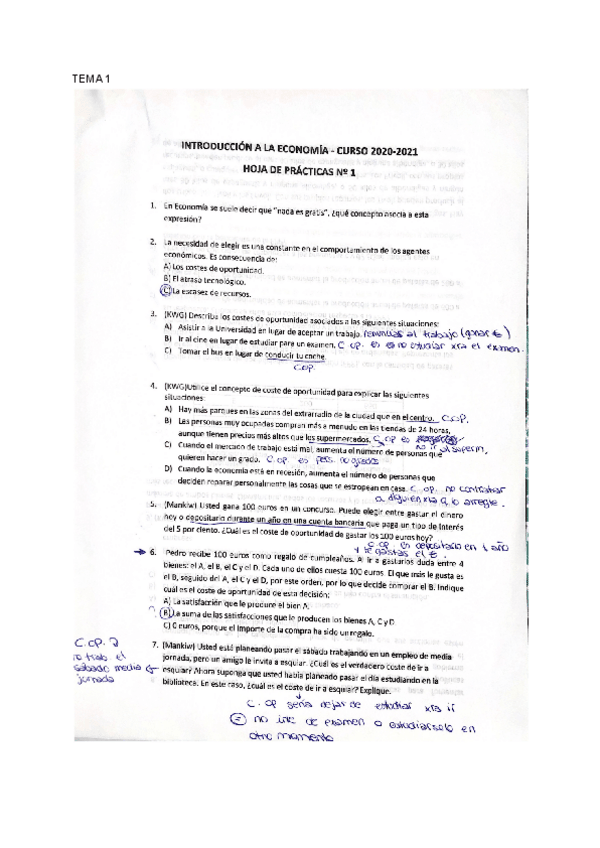 TEMA 1
INTRODUCCIÓN A LA ECONOMÍA - CURSO 2020-2021
HOJA DE PRÁCTICAS Nº 1
1. En Economía se suele decir que "nada es gratis", ¿qué concepto asocia a esta
expresión?
2. La necesidad de elegir es una constante en el comportamiento de los agentes
económicos. Es consecuencia de:
A) Los costes de oportunidad.
B) El atraso tecnológico.
C) La escasez de recursos.
3. (KWG) Describa los costes de oportunidad asociados a las siguientes situaciones:
A) Asistir a la Universidad en lugar de aceptar un trabajo. renuncias al trabajo (ganar €)
B) Ir al cine en lugar de estudiar para un examen. C op. es no estudiar xra el examen.
C) Tomar el bus en lugar de conducir tu coche.
C.op.
4. (KWG) Utilice el concepto de coste de oportunidad para explicar las siguientes
situaciones:
A) Hay más parques en las zonas del extrarradio de la ciudad que en el centro. C.op.
B) Las personas muy ocupadas compran más a menudo en las tiendas de 24 horas,
aunque tienen precios más altos que los supermercados. C op es
no ir al superm,
C) Cuando el mercado de trabajo está mal, aumenta el número de personas que
quieren hacer un grado. C.op. es
D) Cuando la economía está en recesión, aumenta el número de personas que
deciden reparar personalmente las cosas que se estropean en casa. C. op. no contratar
a alguien xra q lo arregle.
5. (Mankiw) Usted gana 100 euros en un concurso. Puede elegir entre gastar el dinero
hoy o depositarlo durante un año en una cuenta bancaria que paga un tipo de interés
del 5 por ciento. ¿Cuál es el coste de oportunidad de gastar los 100 euros hoy?
C.op es depositarlo en 1 año
y te gastas el €.
→ 6. Pedro recibe 100 euros como regalo de cumpleaños. Al ir a gastarlos duda entre 4
bienes: el A, el B, el C y el D. Cada uno de ellos cuesta 100 euros. El que más le gusta es
el B, seguido del A, el C y el D, por este orden, por lo que decide comprar el B. Indique
cuál es el coste de oportunidad de esta decisión:
A) La satisfacción que le produce el bien A.
? B) La suma de las satisfacciones que le producen los bienes A, C y D
C) 0 euros, porque el importe de la compra ha sido un regalo.
7. (Mankiw) Usted está planeando pasar el sábado trabajando en un empleo de media
jornada, pero un amigo le invita a esquiar. ¿Cuál es el verdadero coste de ir a
esquiar? Ahora suponga que usted había planeado pasar el día estudiando en la
biblioteca. En este caso, ¿cuál es el coste de ir a esquiar? Explique.
C.op.
no trab. el
sábado media
jornada
C. op sería dejar de estudiar xra ir
no ir de examen o estudiarselo en
otro momento